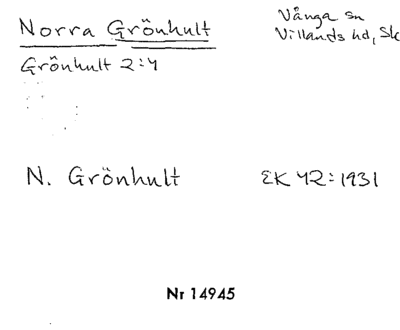 Norra Grönhult
Vånga sn
Villands hd, Sk
Grönhult 2:4
N. Grönhult
EK 42:1931
Nr 14945